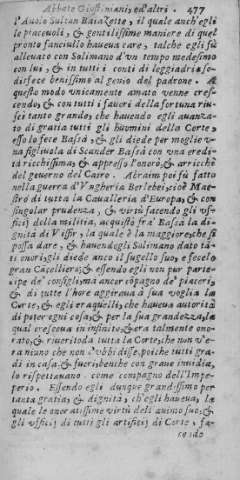 Abbate Giustiniani, ed altri. 477
l'Auolo Sultan Baiazette, il quale anch'egli
le piaceuoli, & gentilissime maniere di quel
pronto fanciullo haueua care, talche egli fù
alleuato con Solimano d'un tempo medesimo
con lui, & in tutti i conti di leggiadria so-
disfece benissimo al genio del padrone. A
questo modo vnicamente amato venne cre-
scendo, & con tutti i fauori della fortuna riu-
sci tanto grande, che hauendo egli auanza-
to di gratia tutti gli huomini della Corte,
esso lo fece Bassà, & gli diede per moglie v-
na figliuola di Scander Bassà con vna eredi-
tà ricchissima, & appresso l'onorò, & arricchì
del gouerno del Cairo. Abraim poi fù fatto
nella guerra d'Vngheria Berlebei, cioè Mae-
stro di tutta la Caualleria d'Europa, & con
singolar prudenza, & virtù facendo gli vf-
ficij della militia, acquistò frà Bassà la di-
gnità di Vissir, la quale è la maggiore, che si
possa dare, & hauendogli Solimano dato tà-
ti onori, gli diede anco il sugello suo, e fecelo
gran Cacelliero; & essendo egli non pur parte-
cipe de' consigli, ma ancor cōpagno de' piaceri,
& di tutte l'hore aggiraua à sua voglia la
Corte, & egli era quello, che haueua autorità
di poter ogni cosa, & per la sua grandezza, la
qual cresceua in infinito, & era talmente ono-
rato, & riuerito da tutta la Corte, che non v'e-
ra niuno che non l'vbbidisse, poiche tutti gra-
di in casa, & fuori, benche con graue inuidia,
lo rispettauano come compagno dell'Impe-
perio. Essendo egli dunque grandissimo per
tanta gratia, & dignità, ch'egli haueua, la
quale le onoratissime virtù dell' animo suo, &
gli vfficij di tutti gli artifitij di Corte, fa-
cendo